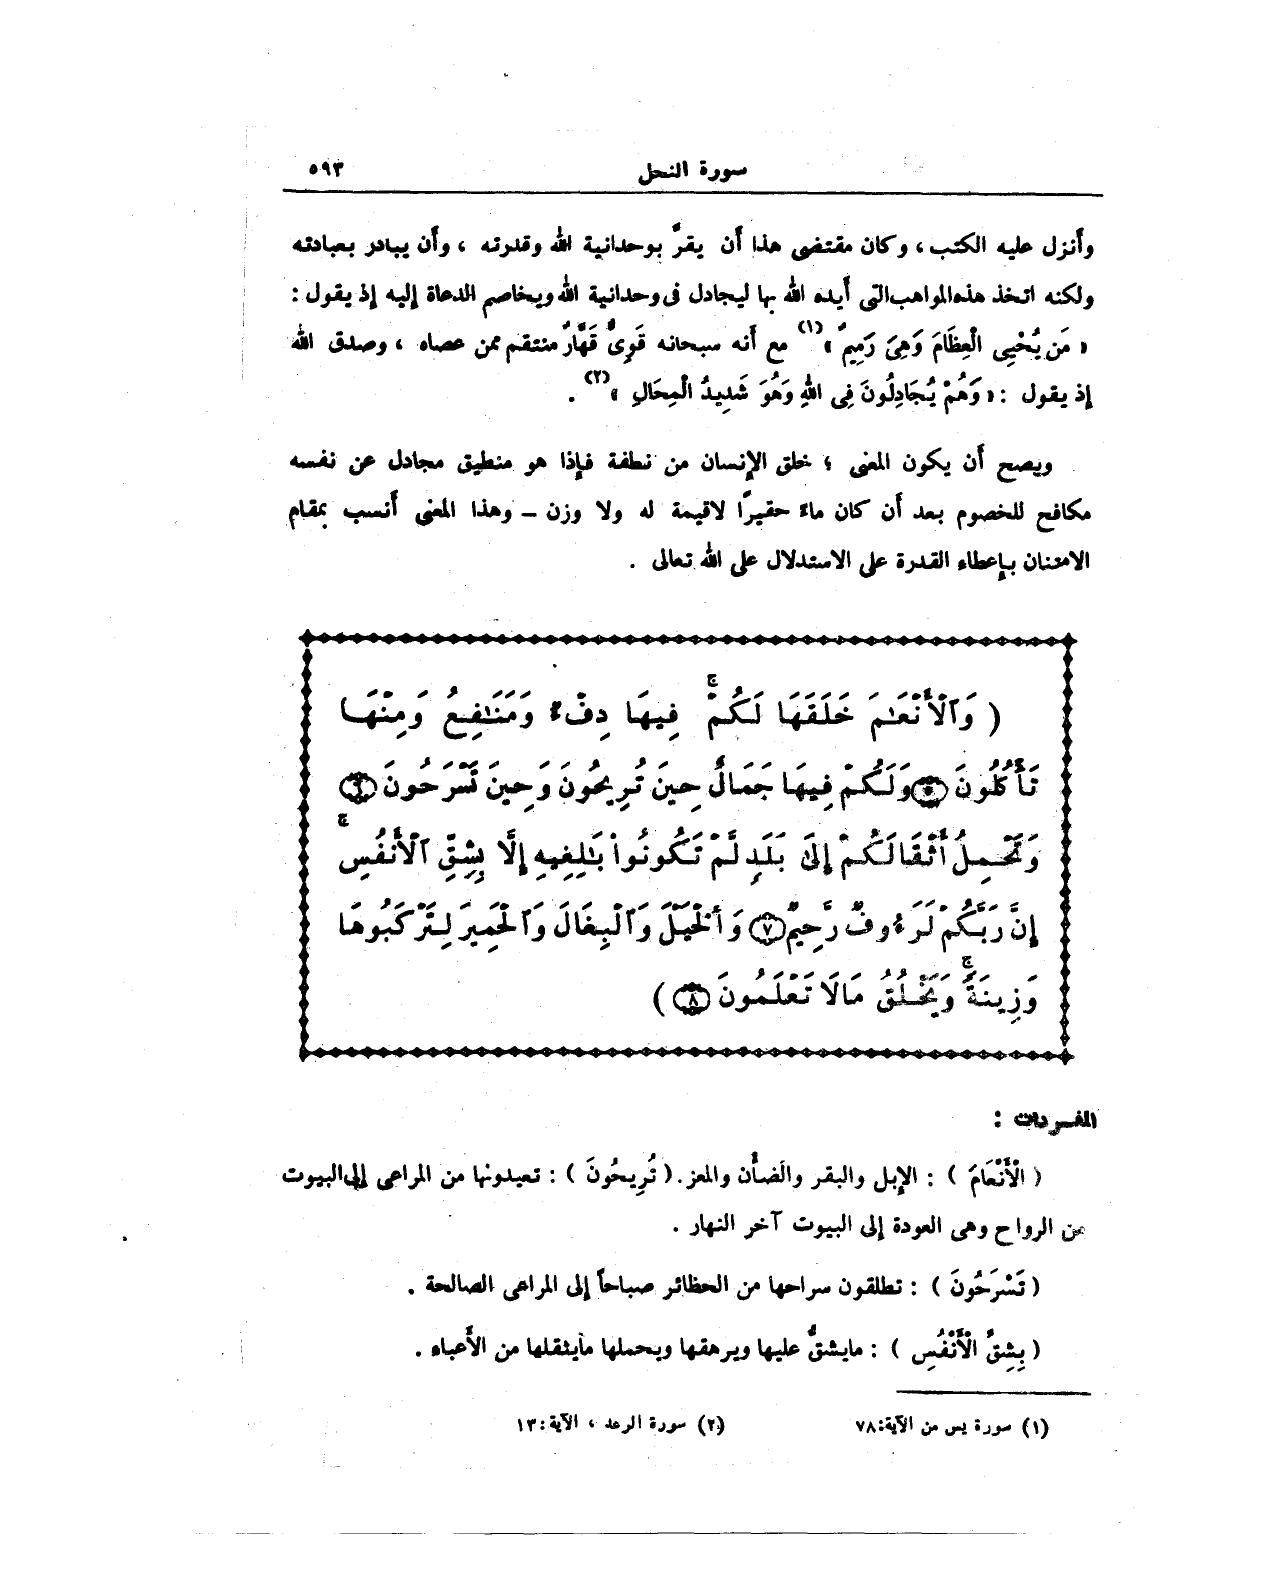 سورة النحل ٥٩٣
وأنزل عليه الكتب، وكان مقتضى هذا أن يقرَّ بوحدانية الله وقدرته ، وأن يبادر بعبادته
ولكنه اتخذ هذه المواهب التى أيده الله بها ليجادل فى وحدانية الله ويخاصم الدعاة إليه إذ يقول :
« مَن يُحْيِى الْعِظَامَ وَهِىَ رَمِيمٌ »(١) مع أنه سبحانه قَوِىٌّ قَهَّارٌ منتقم ممن عصاه ، وصدق الله
إذ يقول : « وَهُمْ يُجَادِلُونَ فِى اللهِ وَهُوَ شَدِيدُ الْمِحَالِ »(٢) .
ويصح أن يكون المعنى ؛ خلق الإنسان من نطفة فإذا هو منطيق مجادل عن نفسه
مكافح للخصوم بعد أن كان ماءً حقيرًا لاقيمة له ولا وزن – وهذا المعنى أنسب بمقام
الامتنان بإعطاء القدرة على الاستدلال على الله تعالى .
( وَٱلْأَنْعَٰمَ خَلَقَهَا لَكُمْ ۚ فِيهَا دِفْءٌ وَمَنَٰفِعُ وَمِنْهَا
تَأْكُلُونَ ۝٥ وَلَكُمْ فِيهَا جَمَالٌ حِينَ تُرِيحُونَ وَحِينَ تَسْرَحُونَ ۝٦
وَتَحْمِلُ أَثْقَالَكُمْ إِلَىٰ بَلَدٍ لَّمْ تَكُونُوا۟ بَٰلِغِيهِ إِلَّا بِشِقِّ ٱلْأَنفُسِ ۚ
إِنَّ رَبَّكُمْ لَرَءُوفٌ رَّحِيمٌ ۝٧ وَٱلْخَيْلَ وَٱلْبِغَالَ وَٱلْحَمِيرَ لِتَرْكَبُوهَا
وَزِينَةً ۚ وَيَخْلُقُ مَالَا تَعْلَمُونَ ۝٨ )
المفردات :
( الْأَنْعَامَ ) : الإبل والبقر والضأن والمعز. ( تُرِيحُونَ ) : تعيدونها من المراعى إلى البيوت
من الرواح وهى العودة إلى البيوت آخر النهار .
( تَسْرَحُونَ ) : تطلقون سراحها من الحظائر صباحاً إلى المراعى الصالحة .
( بِشِقِّ الْأَنْفُسِ ) : مايشقُّ عليها ويرهقها ويحملها مايثقلها من الأعباء .
(١) سورة يس من الآية: ٧٨ (٢) سورة الرعد ، الآية: ١٣